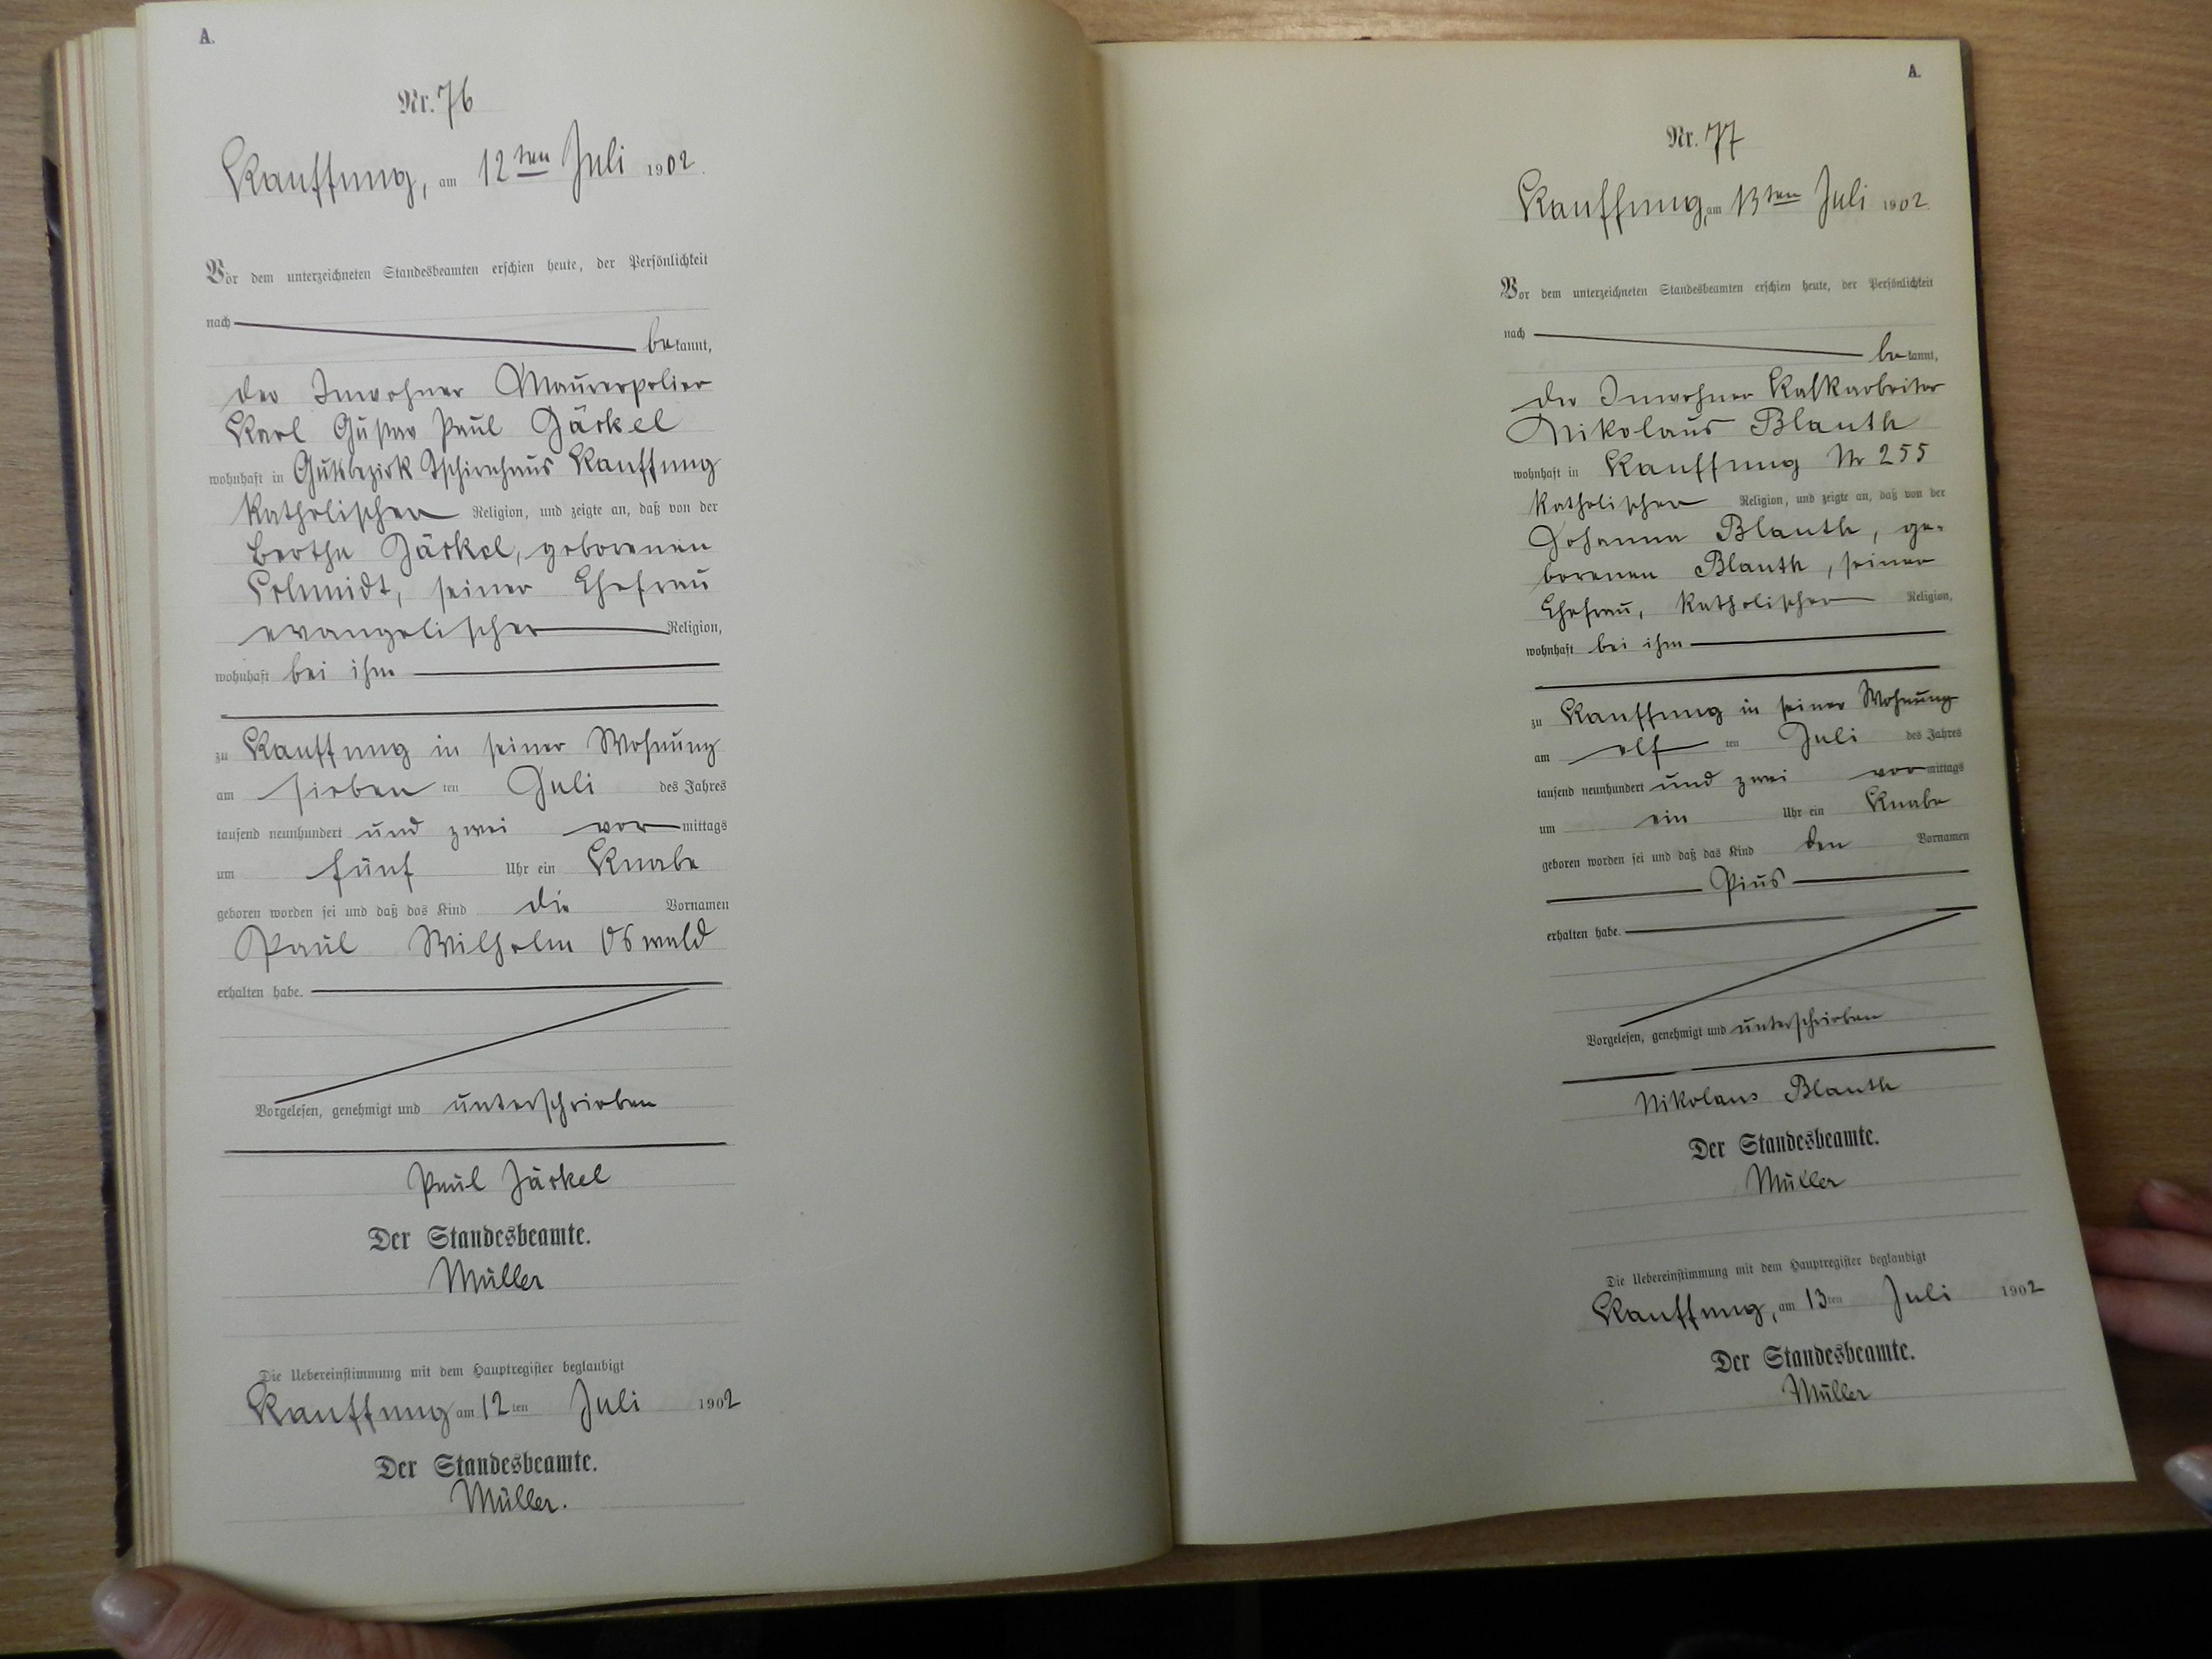 A.
Nr. 76
Kauffung, am 12ten Juli 1902.
Vor dem unterzeichneten Standesbeamten erschien heute, der Persönlichkeit
nach
bekannt,
der Inwohner Maurerpolier
Karl Gustav Paul Järkel
wohnhaft in Gutsbezirk Tschirnhaus Kauffung
katholischer Religion, und zeigte an, daß von der
Bertha Järkel, geborenen
Schmidt, seiner Ehefrau
evangelischer Religion,
wohnhaft bei ihm
zu Kauffung in seiner Wohnung
am sieben ten Juli des Jahres
tausend neunhundert und zwei vormittags
um fünf Uhr ein Knabe
geboren worden sei und daß das Kind die Vornamen
Paul Wilhelm Oswald
erhalten habe.
Vorgelesen, genehmigt und unterschrieben
Paul Järkel
Der Standesbeamte.
Müller
Die Uebereinstimmung mit dem Hauptregister beglaubigt
Kauffung am 12ten Juli 1902
Der Standesbeamte.
Müller.
A.
Nr. 77
Kauffung, am 13ten Juli 1902.
Vor dem unterzeichneten Standesbeamten erschien heute, der Persönlichkeit
nach
bekannt,
der Inwohner Kalkarbeiter
Nikolaus Blauth
wohnhaft in Kauffung Nr 255
katholischer Religion, und zeigte an, daß von der
Johanna Blauth, ge-
borenen Blauth, seiner
Ehefrau, katholischer Religion,
wohnhaft bei ihm
zu Kauffung in seiner Wohnung
am elf ten Juli des Jahres
tausend neunhundert und zwei vormittags
um ein Uhr ein Knabe
geboren worden sei und daß das Kind den Vornamen
Pius
erhalten habe.
Vorgelesen, genehmigt und unterschrieben
Nikolaus Blauth
Der Standesbeamte.
Müller
Die Uebereinstimmung mit dem Hauptregister beglaubigt
Kauffung, am 13ten Juli 1902
Der Standesbeamte.
Müller